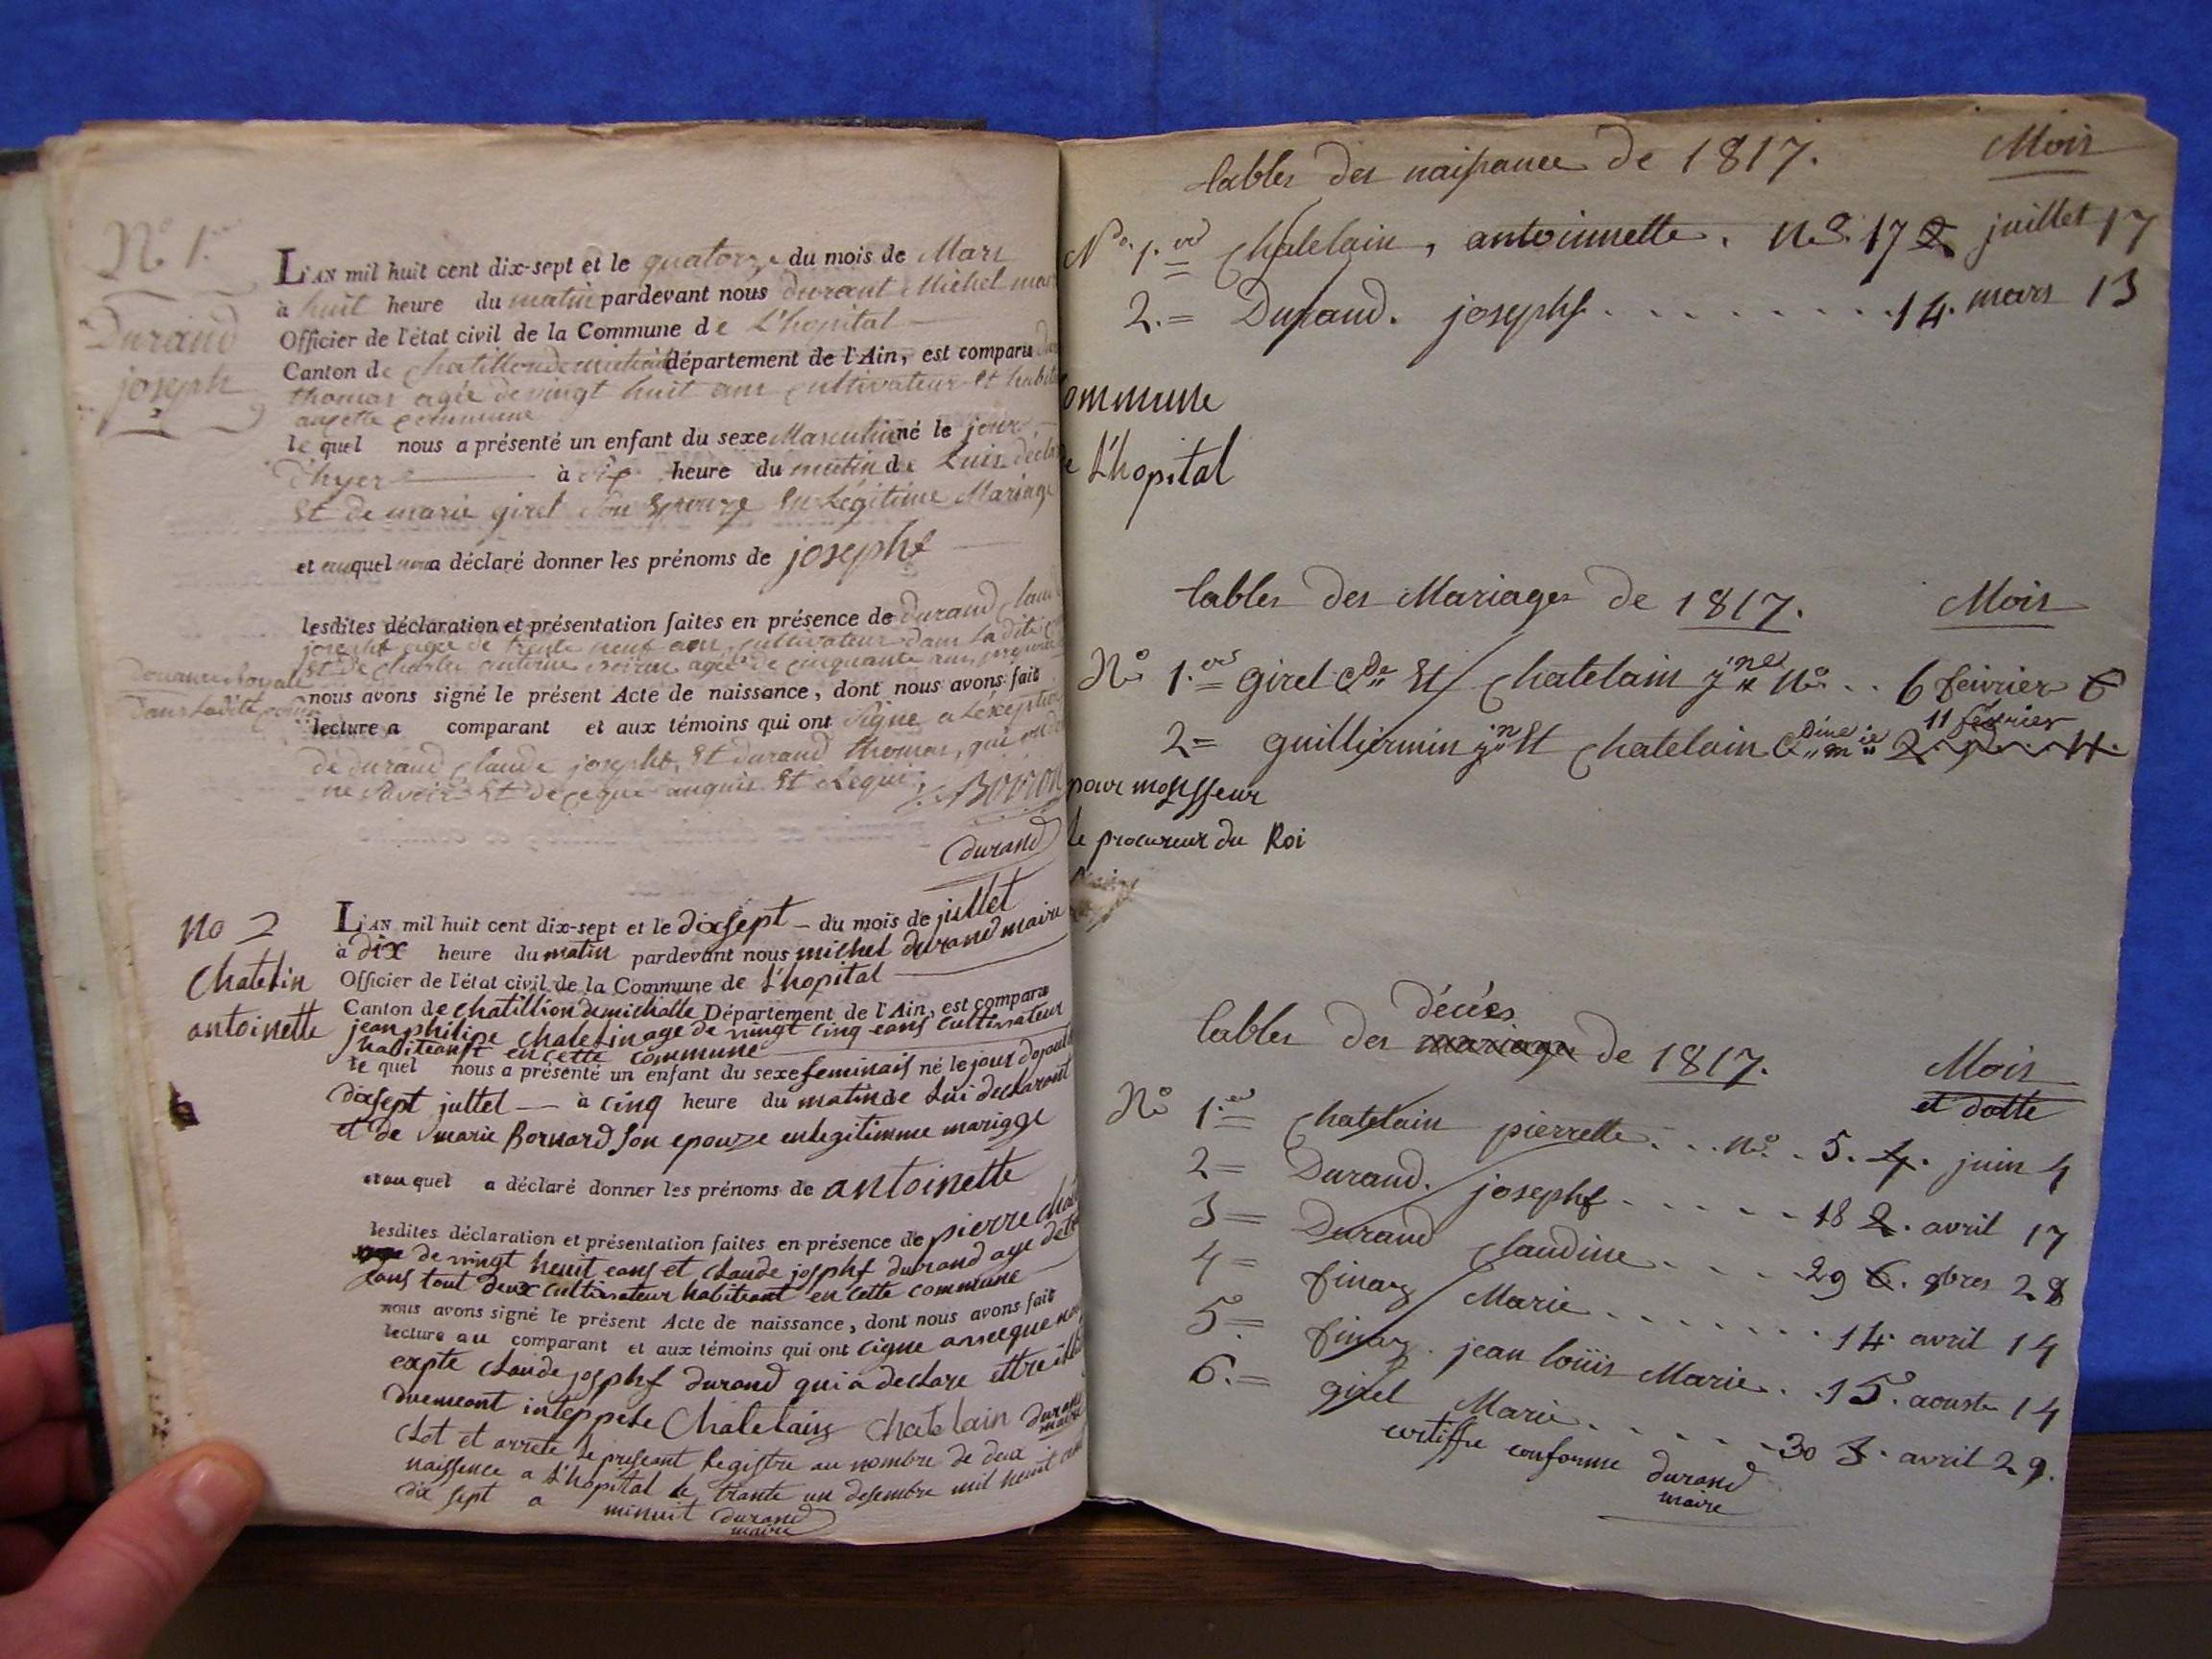 N° 1.
Durand
joseph
L'AN mil huit cent dix-sept et le quatorze du mois de Mars
à huit heure du matin pardevant nous durant Michel
Officier de l'état civil de la Commune de L'hopital
Canton de département de l'Ain, est comparu
thomas agée de vingt huit ans cultivateur Et
commune
le quel nous a présenté un enfant du sexe Masculin né le jour
d'hyer à heure du matin de Luis
Et de marie girel Son Epouze En Légitime Mariage
et auquel a déclaré donner les prénoms de josephf
lesdites déclaration et présentation faites en présence de durand
josephf agée de trente neuf ans cultivateur dans Ladite
Et de antoine agée de cinquante ans
nous avons signé le présent Acte de naissance, dont nous avons fait
lecture a comparant et aux témoins qui ont Signe a
de durand Claude josephf, Et durand thomas, qui
ne Savoir Et de
durand
no 2
Chatelin
antoinette
L'AN mil huit cent dix-sept et le dixsept du mois de juillet
à dix heure du matin pardevant nous michel durand maire
Officier de l'état civil de la Commune de L'hopital
Canton de chatillion demichalle Département de l'Ain, est comparu
jean philipe chatelin age de vingt cinq eans cultivateur
habiteant en cette commune
le quel nous a présenté un enfant du sexe feminais né le jour
dixsept juttel à cinq heure du matin de Lui declaront
et de marie Bornard Son epouze enlegitimme mariage
et au quel a déclaré donner les prénoms de antoinette
lesdites déclaration et présentation faites en présence de pierre
de vingt heuit eans et claude josphf durand age de
eans tout deux cultivateur habiteant en cette commune
nous avons signé le présent Acte de naissance, dont nous avons fait
lecture au comparant et aux témoins qui ont cigne avecque
expte claude josphf durand qui a declare ettre
Chatelain Chatelain durand maire
Clot et arrete le preseant Registre au nombre de deux
naissence a L'hopital le trante un desembre mil heuit cent
dix sept a minuit durand
maire
tables des naissance de 1817. Mois
N° 1. Chatelain, antoinnette. n° 17 2 juillet 17
2. = Durand. josephf 14. mars 13
ommune
L'hopital
tables des Mariages de 1817. Mois
N° 1. = girel Et Chatelain n° 6 feivrier 6
2 = guilliermin Et Chatelain 11 février
pour monsieur
le procureur du Roi
tables des décés mariages de 1817. Mois
et datte
N° 1. Chatelain pierrette n° 5. 4. juin 4
2 = Durand. josephf 18 2. avril 17
3 = Durand Claudine 29 6. 8bres 28
4 = finaz Marie 14 avril 14
5 = finaz jean loüis Marie 15. aoust 14
6. = girel Marie 30 3. avril 29.
certiffié conforme durand
maire